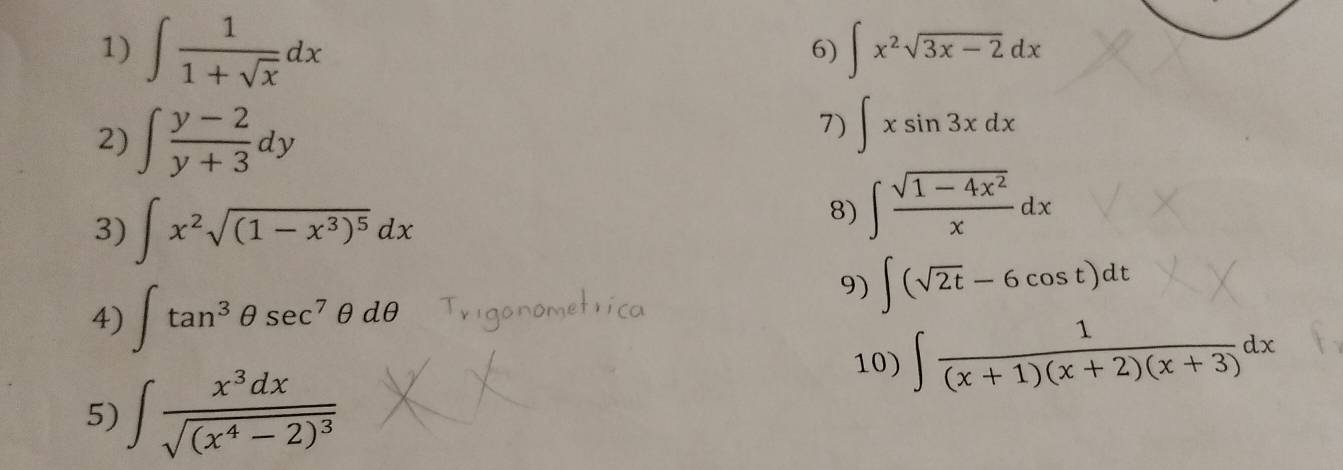 1) ∫ 1/(1 + √x) dx
2) ∫ (y − 2)/(y + 3) dy
3) ∫ x²√((1 − x³)⁵) dx
4) ∫ tan³ θ sec⁷ θ dθ Trigonometrica
5) ∫ x³dx/√((x⁴ − 2)³)
6) ∫ x²√(3x − 2) dx
7) ∫ x sin 3x dx
8) ∫ √(1 − 4x²)/x dx
9) ∫ (√2t − 6 cos t)dt
10) ∫ 1/((x + 1)(x + 2)(x + 3)) dx